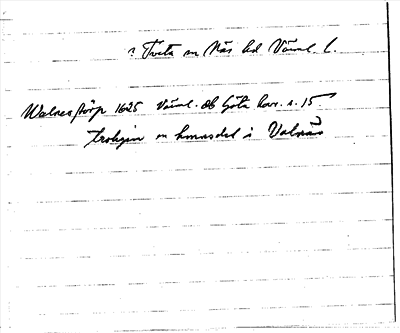 ? Tveta sn Näs hd Värml. l.
Walnes torp 1625 Värml. ob Göta kan. s. 15
troligen en hemmansdel i Valnäs